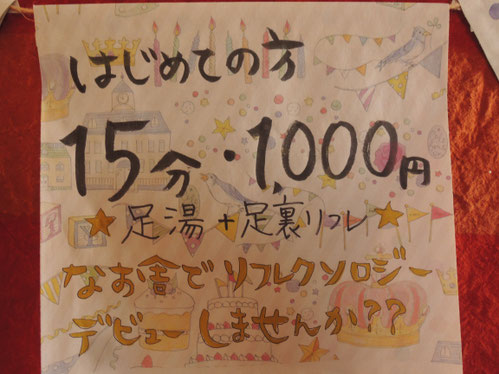 はじめての方
15分・1,000円
★足湯+足裏リフレ★
なお舎でリフレクソロジー
デビューしませんか??